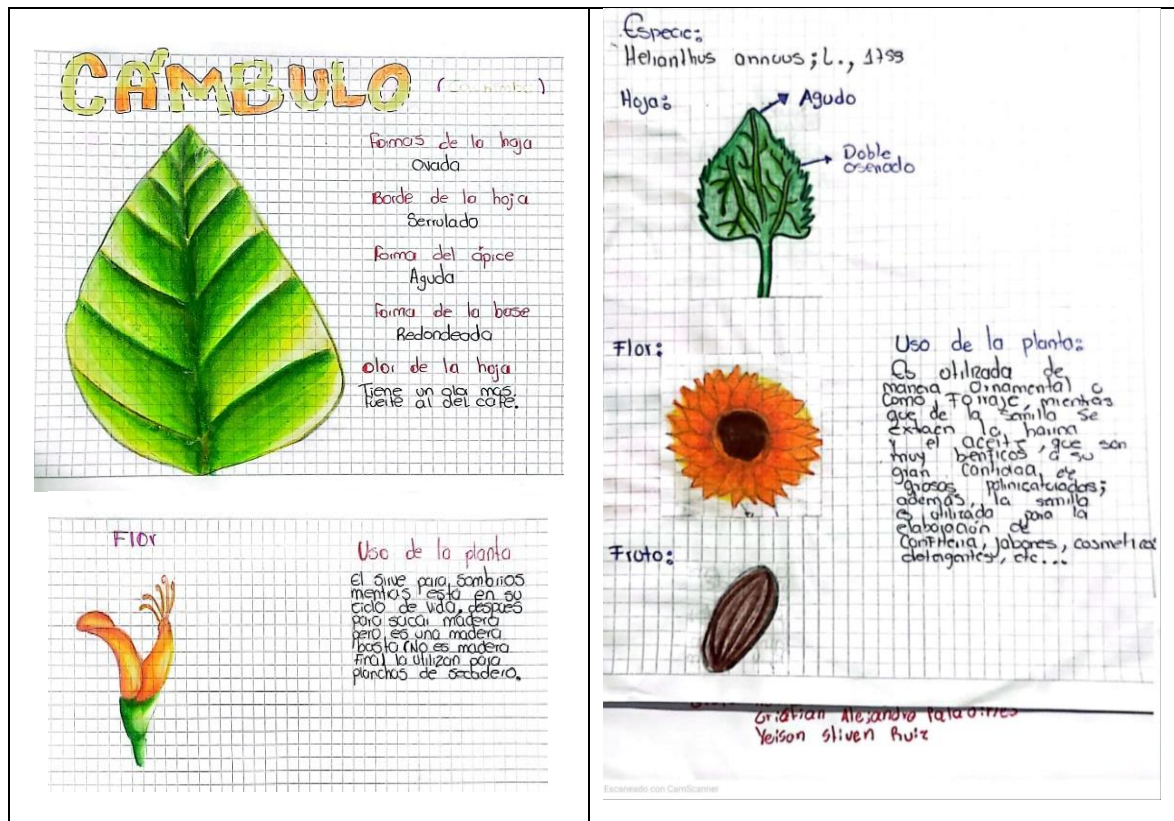 CÁMBULO
Formas de la hoja
Ovada
Borde de la hoja
Serrulado
Forma del ápice
Aguda
Forma de la base
Redondeada
olor de la hoja
Tiene un olor mas
fuerte al del café.
Flor
Uso de la planta
El sirve para sombrios
mentras está en su
ciclo de vida, después
para sacar madera
pero es una madera
basta (No es madera
final la utilizan para
planchas de secadero.
Especie:
Helianthus annuus; L., 1753
Hoja:
Agudo
Doble
aserrado
Flor:
Uso de la planta:
Es utilizada de
manera ornamental o
como forraje, mientras
que de la semilla se
extraen la harina
y el aceite, que son
muy benficos a su
gran cantidad de
grasas
además, la semilla
es utilizada para la
elaboración de
confiteria, jabones, cosmeticos
detergentes, etc...
Fruto:
Cristian Alejandro Paladines
Yeison Stiven Ruiz
Escaneado con CamScanner